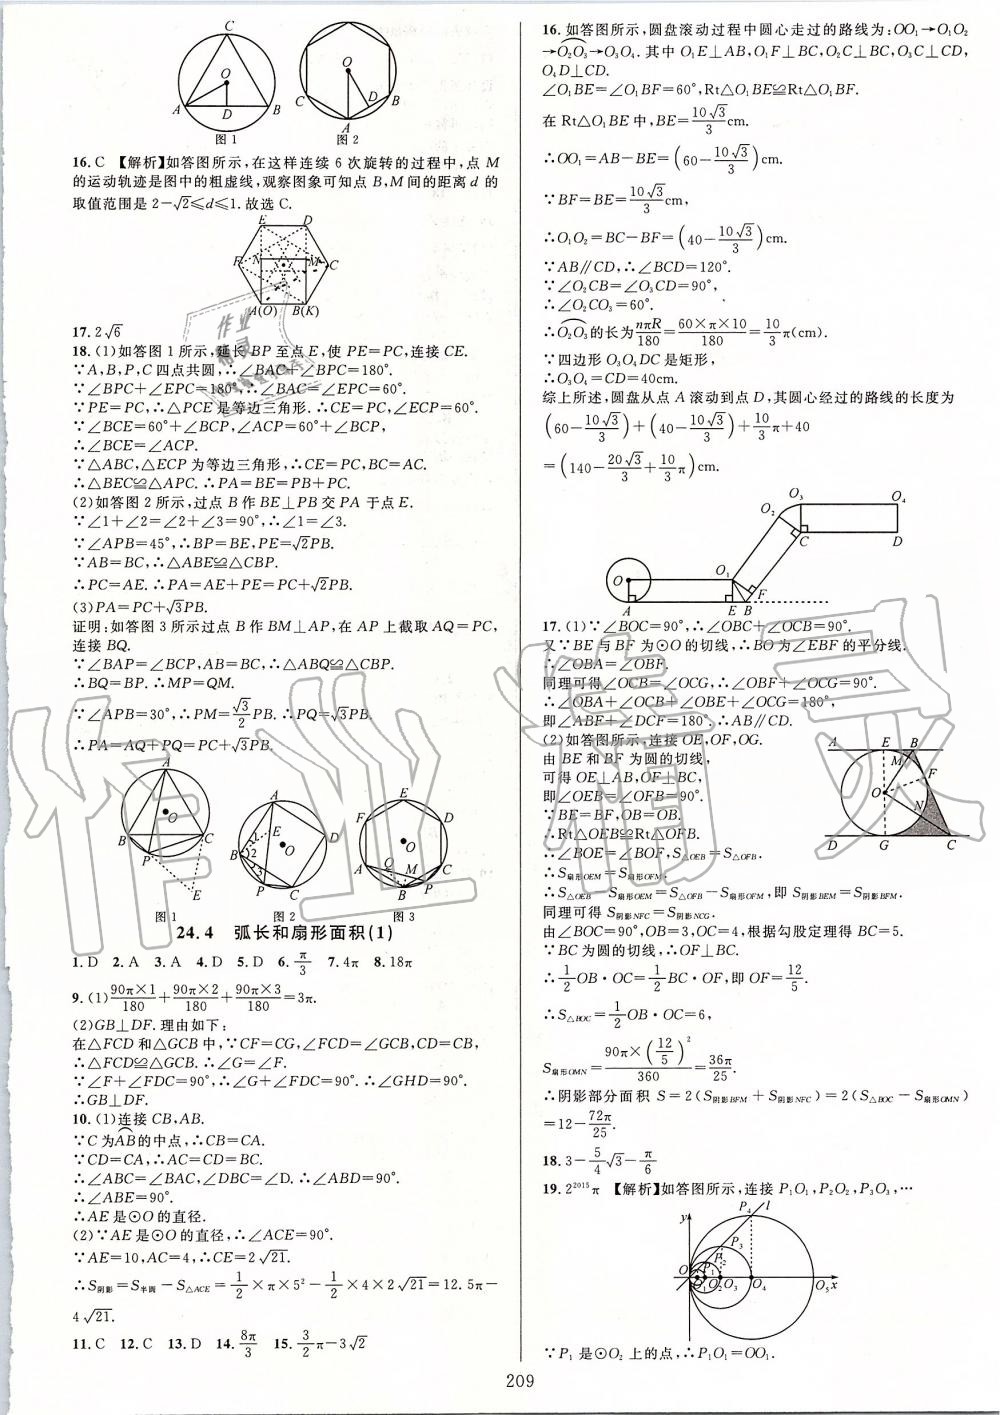 图1 图2
16. C 【解析】如答图所示,在这样连续 6 次旋转的过程中,点 M
的运动轨迹是图中的粗虚线,观察图象可知点 B,M 间的距离 d 的
取值范围是 2-√2≤d≤1.故选 C.
17. 2√6
18. (1)如答图 1 所示,延长 BP 至点 E,使 PE=PC,连接 CE.
∵A,B,P,C 四点共圆,∴∠BAC+∠BPC=180°.
∵∠BPC+∠EPC=180°,∴∠BAC=∠EPC=60°.
∵PE=PC,∴△PCE 是等边三角形.∴CE=PC,∠ECP=60°.
∵∠BCE=60°+∠BCP,∠ACP=60°+∠BCP,
∴∠BCE=∠ACP.
∵△ABC,△ECP 为等边三角形,∴CE=PC,BC=AC.
∴△BEC≌△APC.∴PA=BE=PB+PC.
(2)如答图 2 所示,过点 B 作 BE⊥PB 交 PA 于点 E.
∵∠1+∠2=∠2+∠3=90°,∴∠1=∠3.
∵∠APB=45°,∴BP=BE,PE=√2PB.
∵AB=BC,∴△ABE≌△CBP.
∴PC=AE.∴PA=AE+PE=PC+√2PB.
(3)PA=PC+√3PB.
证明:如答图 3 所示过点 B 作 BM⊥AP,在 AP 上截取 AQ=PC,
连接 BQ.
∵∠BAP=∠BCP,AB=BC,∴△ABQ≌△CBP.
∴BQ=BP.∴MP=QM.
∵∠APB=30°,∴PM=√3/2 PB.∴PQ=√3PB.
∴PA=AQ+PQ=PC+√3PB.
图1 图2 图3
24.4 弧长和扇形面积(1)
1. D 2. A 3. A 4. D 5. D 6. π/3 7. 4π 8. 18π
9. (1)90π×1/180+90π×2/180+90π×3/180=3π.
(2)GB⊥DF.理由如下:
在△FCD 和△GCB 中,∵CF=CG,∠FCD=∠GCB,CD=CB,
∴△FCD≌△GCB.∴∠G=∠F.
∵∠F+∠FDC=90°,∴∠G+∠FDC=90°.∴∠GHD=90°.
∴GB⊥DF.
10. (1)连接 CB,AB.
∵C 为AB⌒的中点,∴CB=CA.
∵CD=CA,∴AC=CD=BC.
∴∠ABC=∠BAC,∠DBC=∠D.∴∠ABD=90°.
∴∠ABE=90°.
∴AE 是⊙O 的直径.
(2)∵AE 是⊙O 的直径,∴∠ACE=90°.
∵AE=10,AC=4,∴CE=2√21.
∴S阴影=S半圆-S△ACE=1/2×π×5²-1/2×4×2√21=12.5π-
4√21.
11. C 12. C 13. D 14. 8π/3 15. 3/2π-3√2
16. 如答图所示,圆盘滚动过程中圆心走过的路线为:OO₁→O₁O₂
→O₂O₃⌒→O₃O₄.其中 O₁E⊥AB,O₁F⊥BC,O₂C⊥BC,O₃C⊥CD,
O₄D⊥CD.
∠O₁BE=∠O₁BF=60°,Rt△O₁BE≌Rt△O₁BF.
在 Rt△O₁BE 中,BE=10√3/3cm.
∴OO₁=AB-BE=(60-10√3/3)cm.
∵BF=BE=10√3/3cm,
∴O₁O₂=BC-BF=(40-10√3/3)cm.
∵AB∥CD,∴∠BCD=120°.
∵∠O₂CB=∠O₃CD=90°,
∴∠O₂CO₃=60°.
∴O₂O₃⌒的长为nπR/180=60×π×10/180=10/3π(cm).
∵四边形 O₃O₄DC 是矩形,
∴O₃O₄=CD=40cm.
综上所述,圆盘从点 A 滚动到点 D,其圆心经过的路线的长度为
(60-10√3/3)+(40-10√3/3)+10/3π+40
=(140-20√3/3+10/3π)cm.
17. (1)∵∠BOC=90°,∴∠OBC+∠OCB=90°.
又∵BE 与 BF 为⊙O 的切线,∴BO 为∠EBF 的平分线.
∴∠OBA=∠OBF.
同理可得∠OCB=∠OCG,∴∠OBF+∠OCG=90°.
∴∠OBA+∠OCB+∠OBE+∠OCG=180°,
即∠ABF+∠DCF=180°.∴AB∥CD.
(2)如答图所示,连接 OE,OF,OG.
由 BE 和 BF 为圆的切线,
可得 OE⊥AB,OF⊥BC,
即∠OEB=∠OFB=90°.
∵BE=BF,OB=OB.
∴Rt△OEB≌Rt△OFB.
∴∠BOE=∠BOF,S△OEB=S△OFB.
∴S扇形OEM=S扇形OFM.
∴S△OEB S扇形OEM=S△OFB-S扇形OFM,即 S阴影BEM=S阴影BFM.
同理可得 S阴影NFC=S阴影NCG.
由∠BOC=90°,OB=3,OC=4,根据勾股定理得 BC=5.
∵BC 为圆的切线,∴OF⊥BC.
∴1/2OB·OC=1/2BC·OF,即 OF=12/5.
∴S△BOC=1/2OB·OC=6,
S扇形OMN=90π×(12/5)²/360=36π/25.
∴阴影部分面积 S=2(S阴影BFM+S阴影NFC)=2(S△BOC-S扇形OMN)
=12-72π/25.
18. 3-5/4√3-π/6
19. 2²⁰¹⁵π 【解析】如答图所示,连接 P₁O₁,P₂O₂,P₃O₃,…
∵P₁ 是⊙O₂ 上的点,∴P₁O₁=OO₁.
209